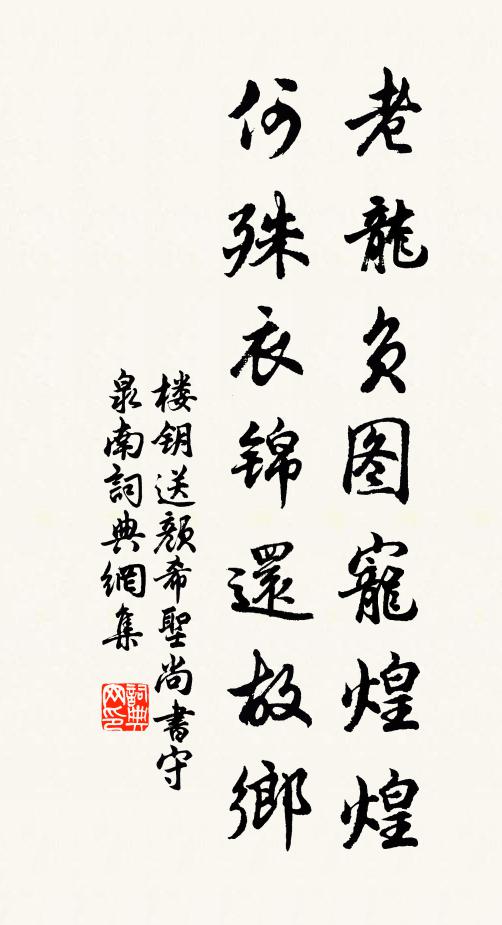 老龍負图寵煌煌
何殊衣锦還故鄉
楼钥送颜希聖尚書守
泉南詞典網集
詞典网印